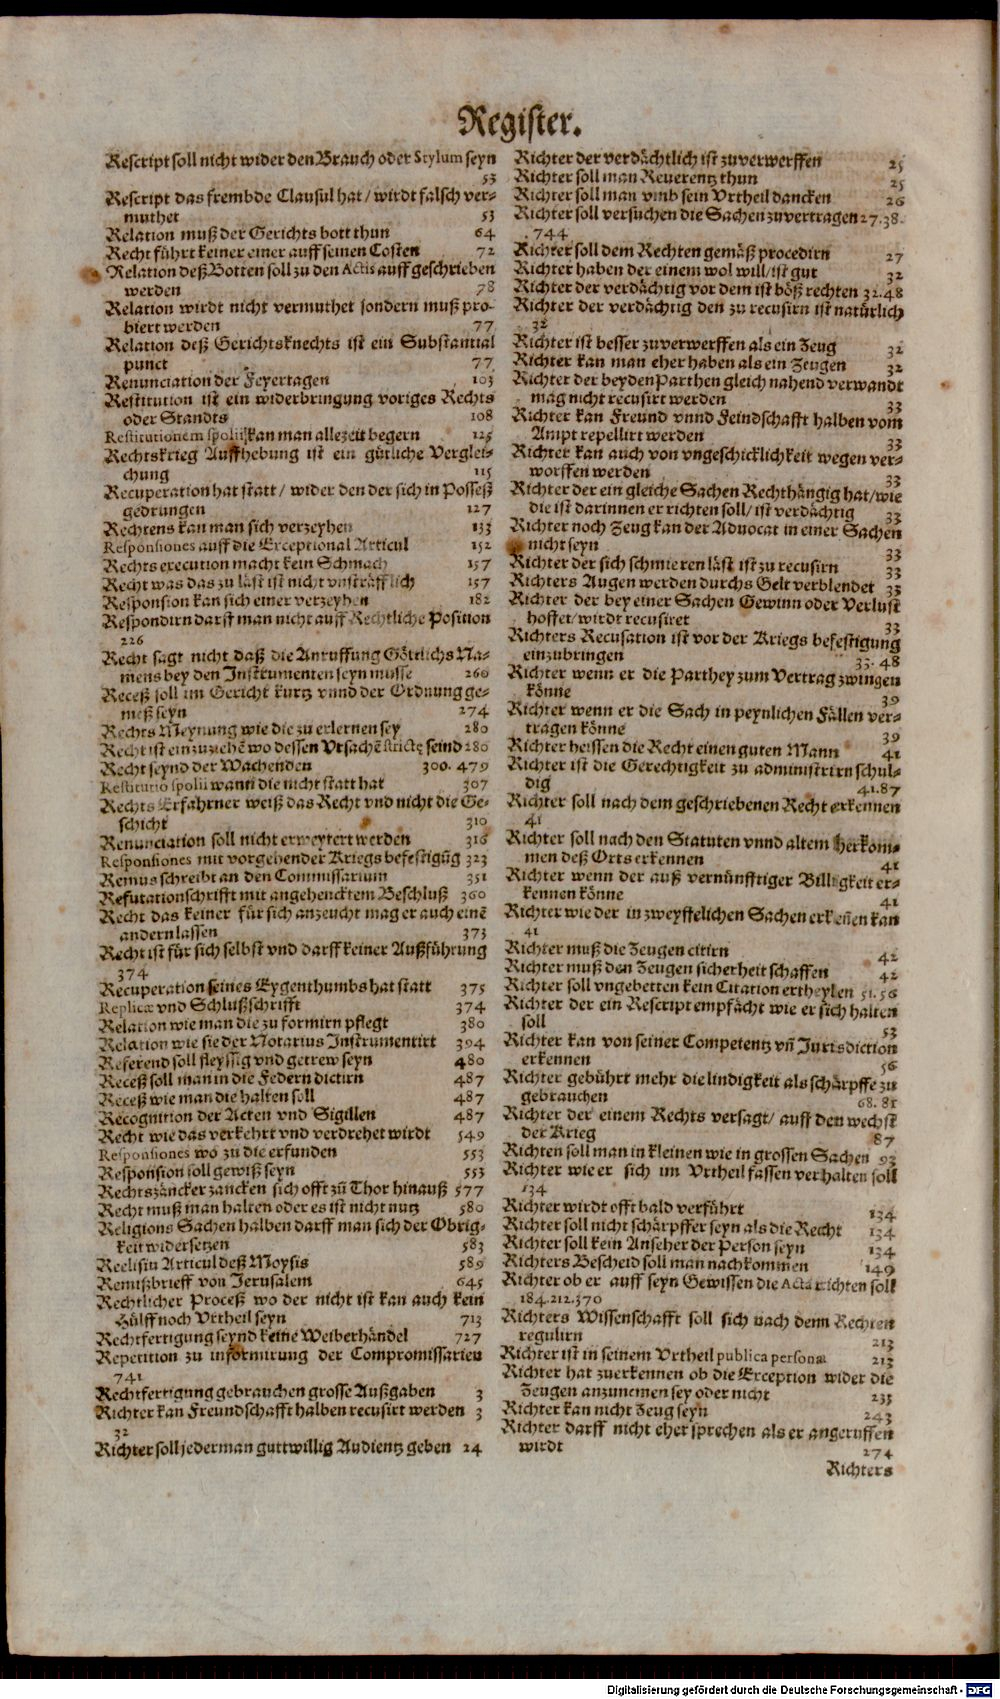 Register.
Rescript soll nicht wider den Brauch oder Stylum seyn
53
Rescript das frembde Clausul hat / wirdt falsch ver-
muthet 53
Relation muß der Gerichts bott thun 64
Recht führt keiner einer auff seinen Costen 72
Relation deß Botten soll zu den Actis auffgeschrieben
werden 78
Relation wirdt nicht vermuthet sondern muß pro-
biert werden 77
Relation deß Gerichtsknechts ist ein Substantial
punct 77
Renunciation der Feyertagen 103
Restitution ist ein widerbringung voriges Rechts
oder Standts 108
Restitutionem spolij kan man allezeit begern 125
Rechtskrieg Auffhebung ist ein gütliche Verglei-
chung 115
Recuperation hat statt / wider den der sich in Posseß
gedrungen 127
Rechtens kan man sich verzeyhen 133
Responsiones auff die Exceptional Articul 152
Rechts execution macht kein Schmach 157
Recht was das zu läst ist nicht vnsträfflich 157
Responsion kan sich einer verzeyhen 182
Respondirn darff man nicht auff Rechtliche Position
226
Recht sagt nicht daß die Anruffung Göttlichs Na-
mens bey den Instrumenten seyn müsse 260
Receß soll im Gericht kurtz vnnd der Ordnung ge-
meß seyn 274
Rechts Meynung wie die zu erlernen sey 280
Recht ist einzuziehē wo dessen Vrsachē strictę seind 280
Recht seynd der Wachenden 300. 479
Restitutio spolii wann die nicht statt hat 307
Rechts Erfahrner weiß das Recht vnd nicht die Ge-
schicht 310
Renunciation soll nicht erweytert werden 316
Responsiones mit vorgehender Kriegs befestigūg 323
Remus schreibt an den Commissarium 351
Refutationschrifft mit angehencktem Beschluß 360
Recht das keiner für sich anzeucht mag er auch einē
andern lassen 373
Recht ist für sich selbst vnd darff keiner Außführung
374
Recuperation seines Eygenthumbs hat statt 375
Replicæ vnd Schlußschrifft 374
Relation wie man die zu formirn pflegt 380
Relation wie sie der Notarius Instrumentirt 394
Referend soll fleyssig vnd getrew seyn 480
Receß soll man in die Federn dictirn 487
Receß wie man die halten soll 487
Recognition der Acten vnd Sigillen 487
Recht wie das verkehrt vnd verdrehet wirdt 549
Responsiones wo zu die erfunden 553
Responsion soll gewiß seyn 553
Rechtszäncker zancken sich offt zū Thor hinauß 577
Recht muß man halten oder es ist nicht nutz 580
Religions Sachen halben darff man sich der Obrig-
keit widersetzen 583
Reelisin Articul deß Moysis 589
Remißbrieff von Jerusalem 645
Rechtlicher Proceß wo der nicht ist kan auch kein
Hülff noch Vrtheil seyn 713
Rechtfertigung seynd keine Weiberhändel 727
Repetition zu informirung der Compromissarien
741
Rechtfertigung gebrauchen grosse Außgaben 3
Richter kan Freundschafft halben recusirt werden 3
32
Richter soll jederman guttwillig Audientz geben 24
Richter der verdächtlich ist zuverwerffen 25
Richter soll man Reverentz thun 25
Richter soll man vmb sein Vrtheil dancken 26
Richter soll versuchen die Sachen zuvertragen 27.38.
744
Richter soll dem Rechten gemäß procedirn 27
Richter haben der einem wol will/ ist gut 32
Richter der verdächtig vor dem ist böß rechten 32.48
Richter der verdächtig den zu recusirn ist natürlich
32
Richter ist besser zuverwerffen als ein Zeug 32
Richter kan man eher haben als ein Zeugen 32
Richter der beyden Parthen gleich nahend verwandt
mag nicht recusirt werden 33
Richter kan Freund vnnd Feindschafft halben vom
Ampt repellirt werden 33
Richter kan auch von vngeschicklichkeit wegen ver-
worffen werden 33
Richter der ein gleiche Sachen Rechthängig hat/ wie
die ist darinnen er richten soll/ ist verdächtig 33
Richter noch Zeug kan der Advocat in einer Sachen
nicht seyn 33
Richter der sich schmieren läst ist zu recusirn 33
Richters Augen werden durchs Gelt verblendet 33
Richter der bey einer Sachen Gewinn oder Verlust
hoffet/ wirdt recusiret 33
Richters Recusation ist vor der Kriegs befestigung
einzubringen 33. 48
Richter wenn er die Parthey zum Vertrag zwingen
könne 39
Richter wenn er die Sach in peynlichen Fällen ver-
tragen könne 39
Richter heissen die Recht einen guten Mann 41
Richter ist die Gerechtigkeit zu administrirn schul-
dig 41.87
Richter soll nach dem geschriebenen Recht erkennen
41
Richter soll nach den Statuten vnnd altem herkom-
men deß Orts erkennen 41
Richter wenn der auß vernünfftiger Billigkeit er-
kennen könne 41
Richter wie der in zweyffelichen Sachen erkeñen kan
41
Richter muß die Zeugen citirn 42
Richter muß den Zeugen sicherheit schaffen 42
Richter soll vngebetten kein Citation ertheylen 51.56
Richter der ein Rescript empfächt wie er sich halten
soll 53
Richter kan von seiner Competentz vñ Jurisdiction
erkennen 56
Richter gebührt mehr die lindigkeit als schärpffe zu
gebrauchen 68. 81
Richter der einem Rechts versagt/ auff den wechst
der Krieg 87
Richten soll man in kleinen wie in grossen Sachen 93
Richter wie er sich im Vrtheil fassen verhalten soll
134
Richter wirdt offt bald verführt 134
Richter soll nicht schärpffer seyn als die Recht 134
Richter soll kein Anseher der Person seyn 134
Richters Bescheid soll man nachkommen 149
Richter ob er auff seyn Gewissen die Acta richten soll
184.212.370
Richters Wissenschafft soll sich nach denn Rechten
regulirn 213
Richter ist in seinem Vrtheil publica persona 213
Richter hat zuerkennen ob die Exception wider die
Zeugen anzunemen sey oder nicht 235
Richter kan nicht Zeug seyn 243
Richter darff nicht eher sprechen als er angeruffen
wirdt 274
Richters
Digitalisierung gefördert durch die Deutsche Forschungsgemeinschaft - DFG